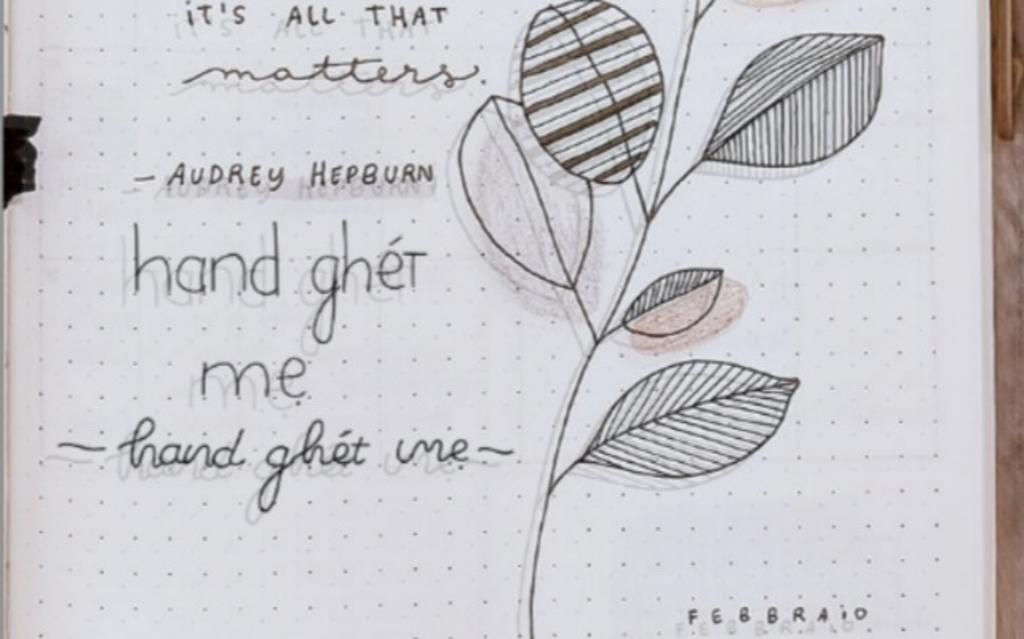 iT'S ALL THAT
matters.
– AUDREY HEPBURN
hand ghét
mẹ
~ hand ghét mẹ ~
FEBBRAiO